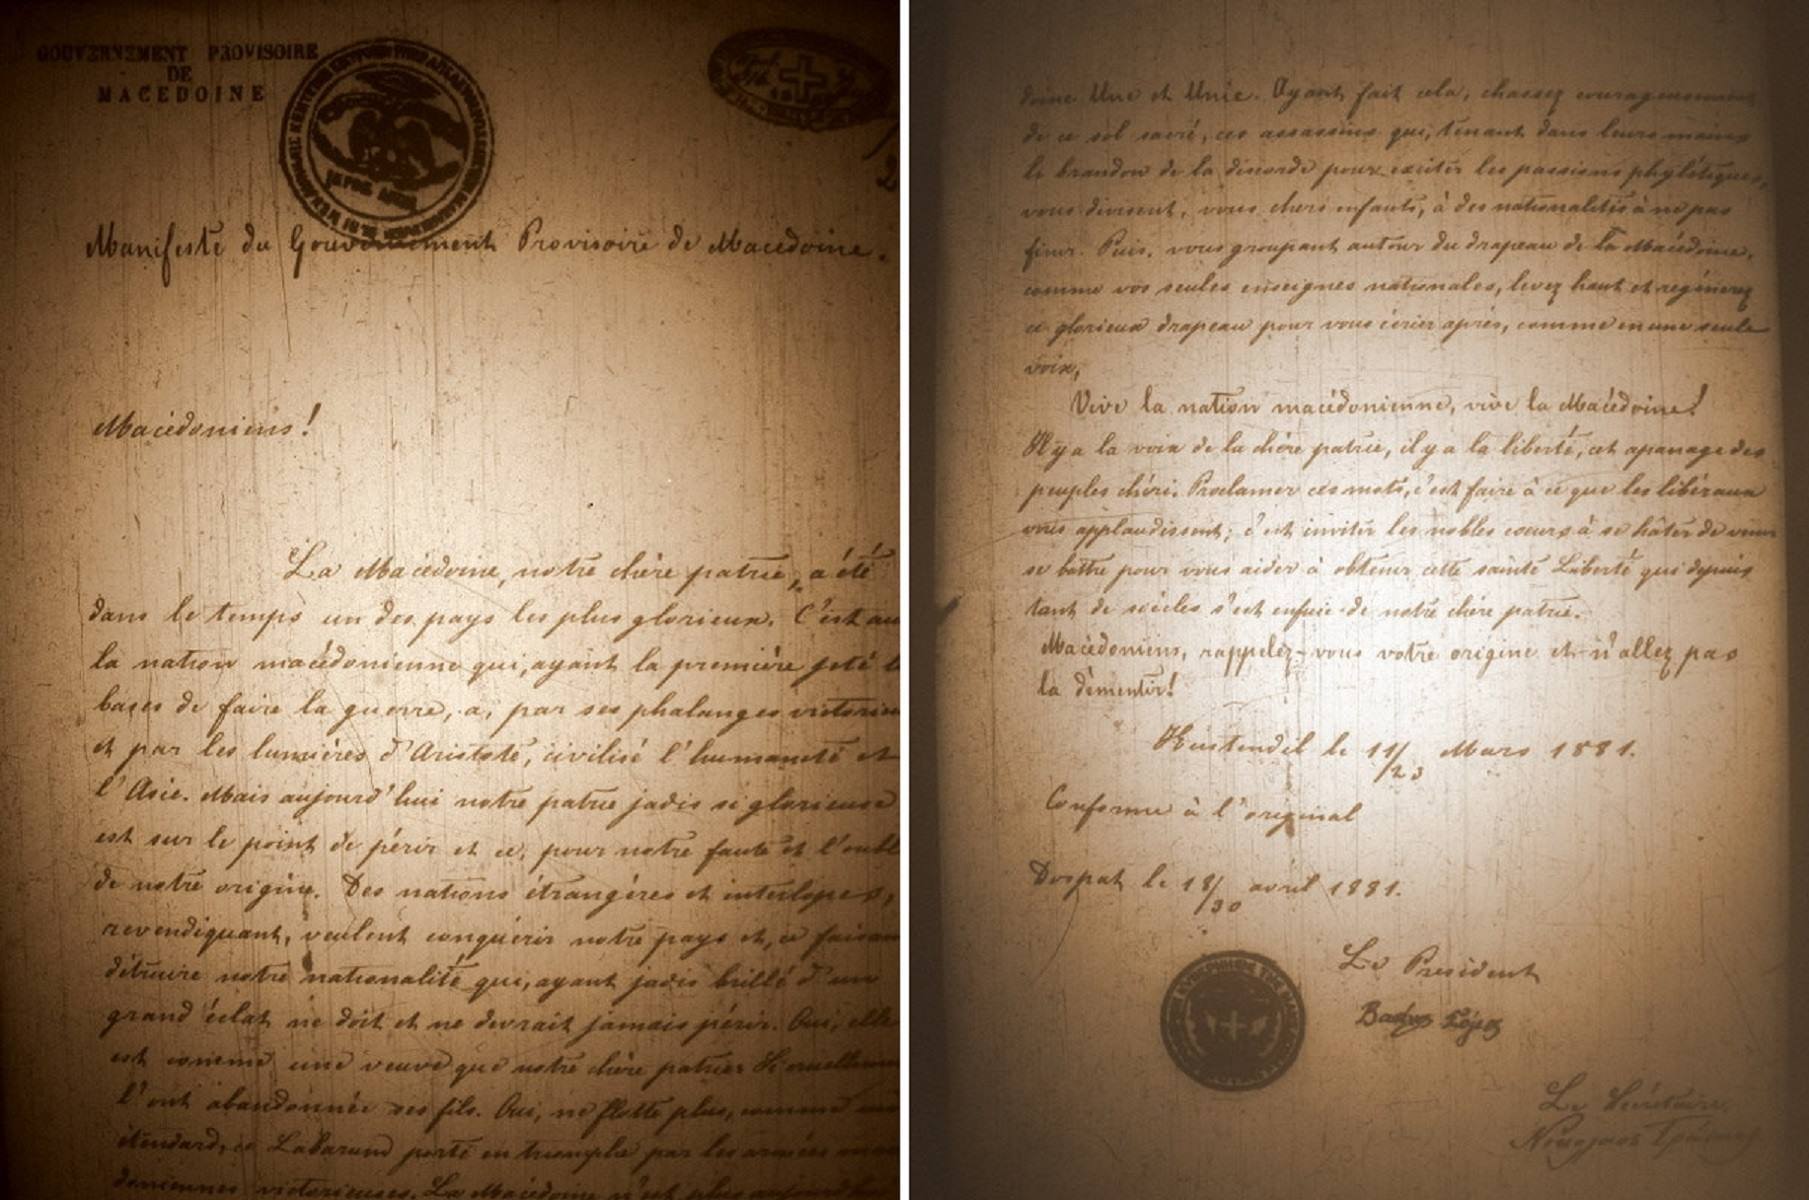 GOUVERNEMENT PROVISOIRE
DE
MACEDOINE
Manifeste du Gouvernement Provisoire de Macédoine.
Macédoniens!
La Macédoine, notre chère patrie, a été
dans le temps un des pays les plus glorieux. C'est
la nation macédonienne qui, ayant la première jeté
bases de faire la guerre, a, par ses phalanges
et par les lumières d'Aristote, civilisé l'humanité et
l'Asie. Mais aujourd'hui notre patrie jadis si glorieuse
est sur le point de périr et ce, pour notre faute et
de notre origine. Des nations étrangères et interlopes,
revendiquant, veulent conquérir notre pays et, ce
détruire notre nationalité qui, ayant jadis brillé d'un
grand éclat ne doit et ne devrait jamais périr. Oui, elle
est comme une veuve que notre chère patrie. Si
l'ont abandonnée ses fils. Oui, ne flotte plus, comme
étendard, ce Labarum porté en triomphe par les armées
victorieuses. La Macédoine n'est plus
doine Une et Unie. Ayant fait cela, chassez courageusement
de ce sol sacré, ces assassins qui, tenant dans leurs mains
le brandon de la discorde pour exciter les passions phylétiques,
vous divisent, vous chers enfants, à des nationalités à ne pas
finir. Puis, vous groupant autour du drapeau de la Macédoine,
comme vos seules enseignes nationales, levez haut et régénérez
ce glorieux drapeau pour vous écrier après, comme en une seule
voix,
Vive la nation macédonienne, vive la Macédoine!
Il y a la voix de la chère patrie, il y a la liberté, cet apanage des
peuples chéri. Proclamer ces mots, c'est faire à ce que les libéraux
vous applaudissent; c'est inviter les nobles cœurs à se hâter de venir
se battre pour vous aider à obtenir cette sainte Liberté qui depuis
tant de siècles s'est enfuie de notre chère patrie.
Macédoniens, rappelez-vous votre origine et n'allez pas
la démentir!
Kustendil le 11/23 Mars 1881.
Conforme à l'original
Dospat le 18/30 avril 1881.
Le President
Le Secrétaire